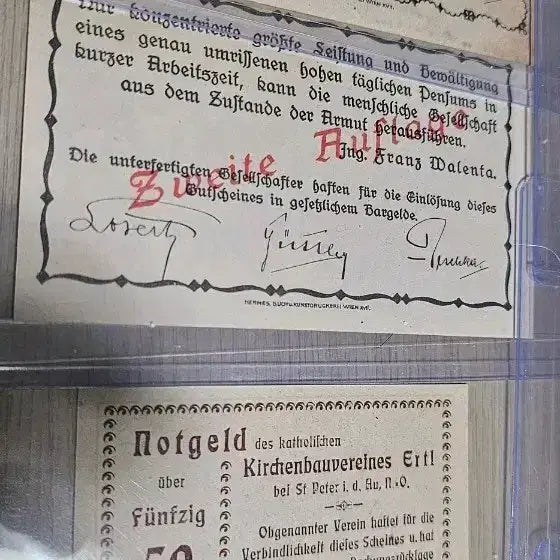 Nur konzentrierte größte Leistung und Bewältigung
eines genau umrissenen hohen täglichen Pensums in
kurzer Arbeitszeit, kann die menschliche Gesellschaft
aus dem Zustande der Armut herausführen.
Ing. Franz Walenta.
Zweite Auflage
Die unterfertigten Gesellschafter haften für die Einlösung dieses
Gutscheines in gesetzlichem Bargelde.
HERMES, BUCH U. KUNSTDRUCKEREI WIEN XVI.
Notgeld des katholischen
Kirchenbauvereines Ertl
bei St Peter i. d. Au, N.-O.
über
Fünfzig
50
Obgenannter Verein haftet für die
Verbindlichkeit dieses Scheines u. hat